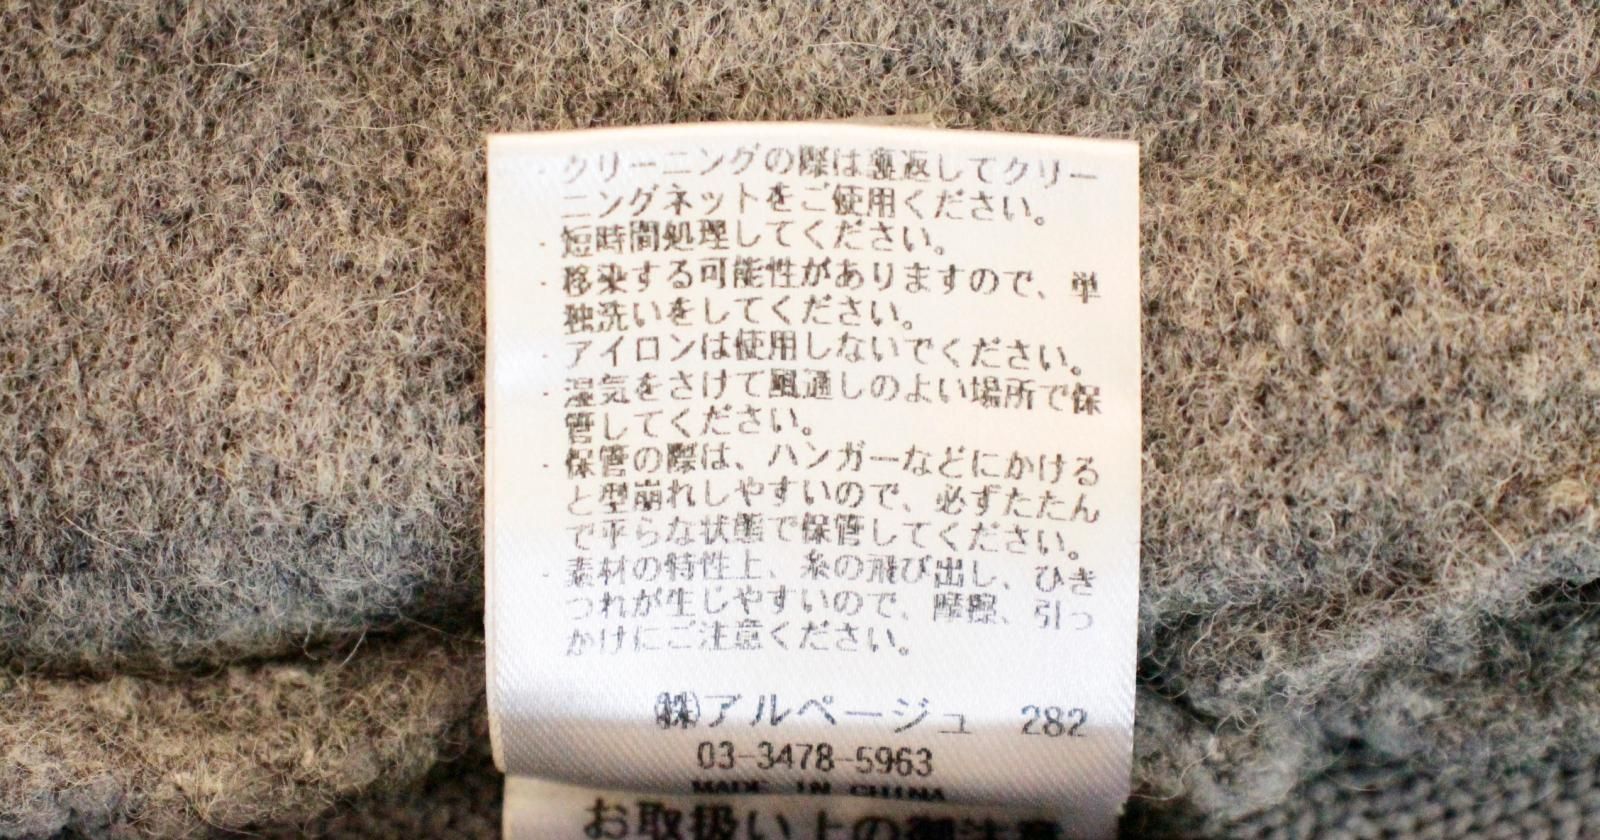 ・クリーニングの際は裏返してクリー
ニングネットをご使用ください。
・短時間処理してください。
・移染する可能性がありますので、単
独洗いをしてください。
・アイロンは使用しないでください。
・湿気をさけて風通しのよい場所で保
管してください。
・保管の際は、ハンガーなどにかける
と型崩れしやすいので、必ずたたん
で平らな状態で保管してください。
・素材の特性上、糸の飛び出し、ひき
つれが生じやすいので、摩擦、引っ
かけにご注意ください。
㈱アルページュ 282
03-3478-5963
MADE IN CHINA
お取扱い上の御注意